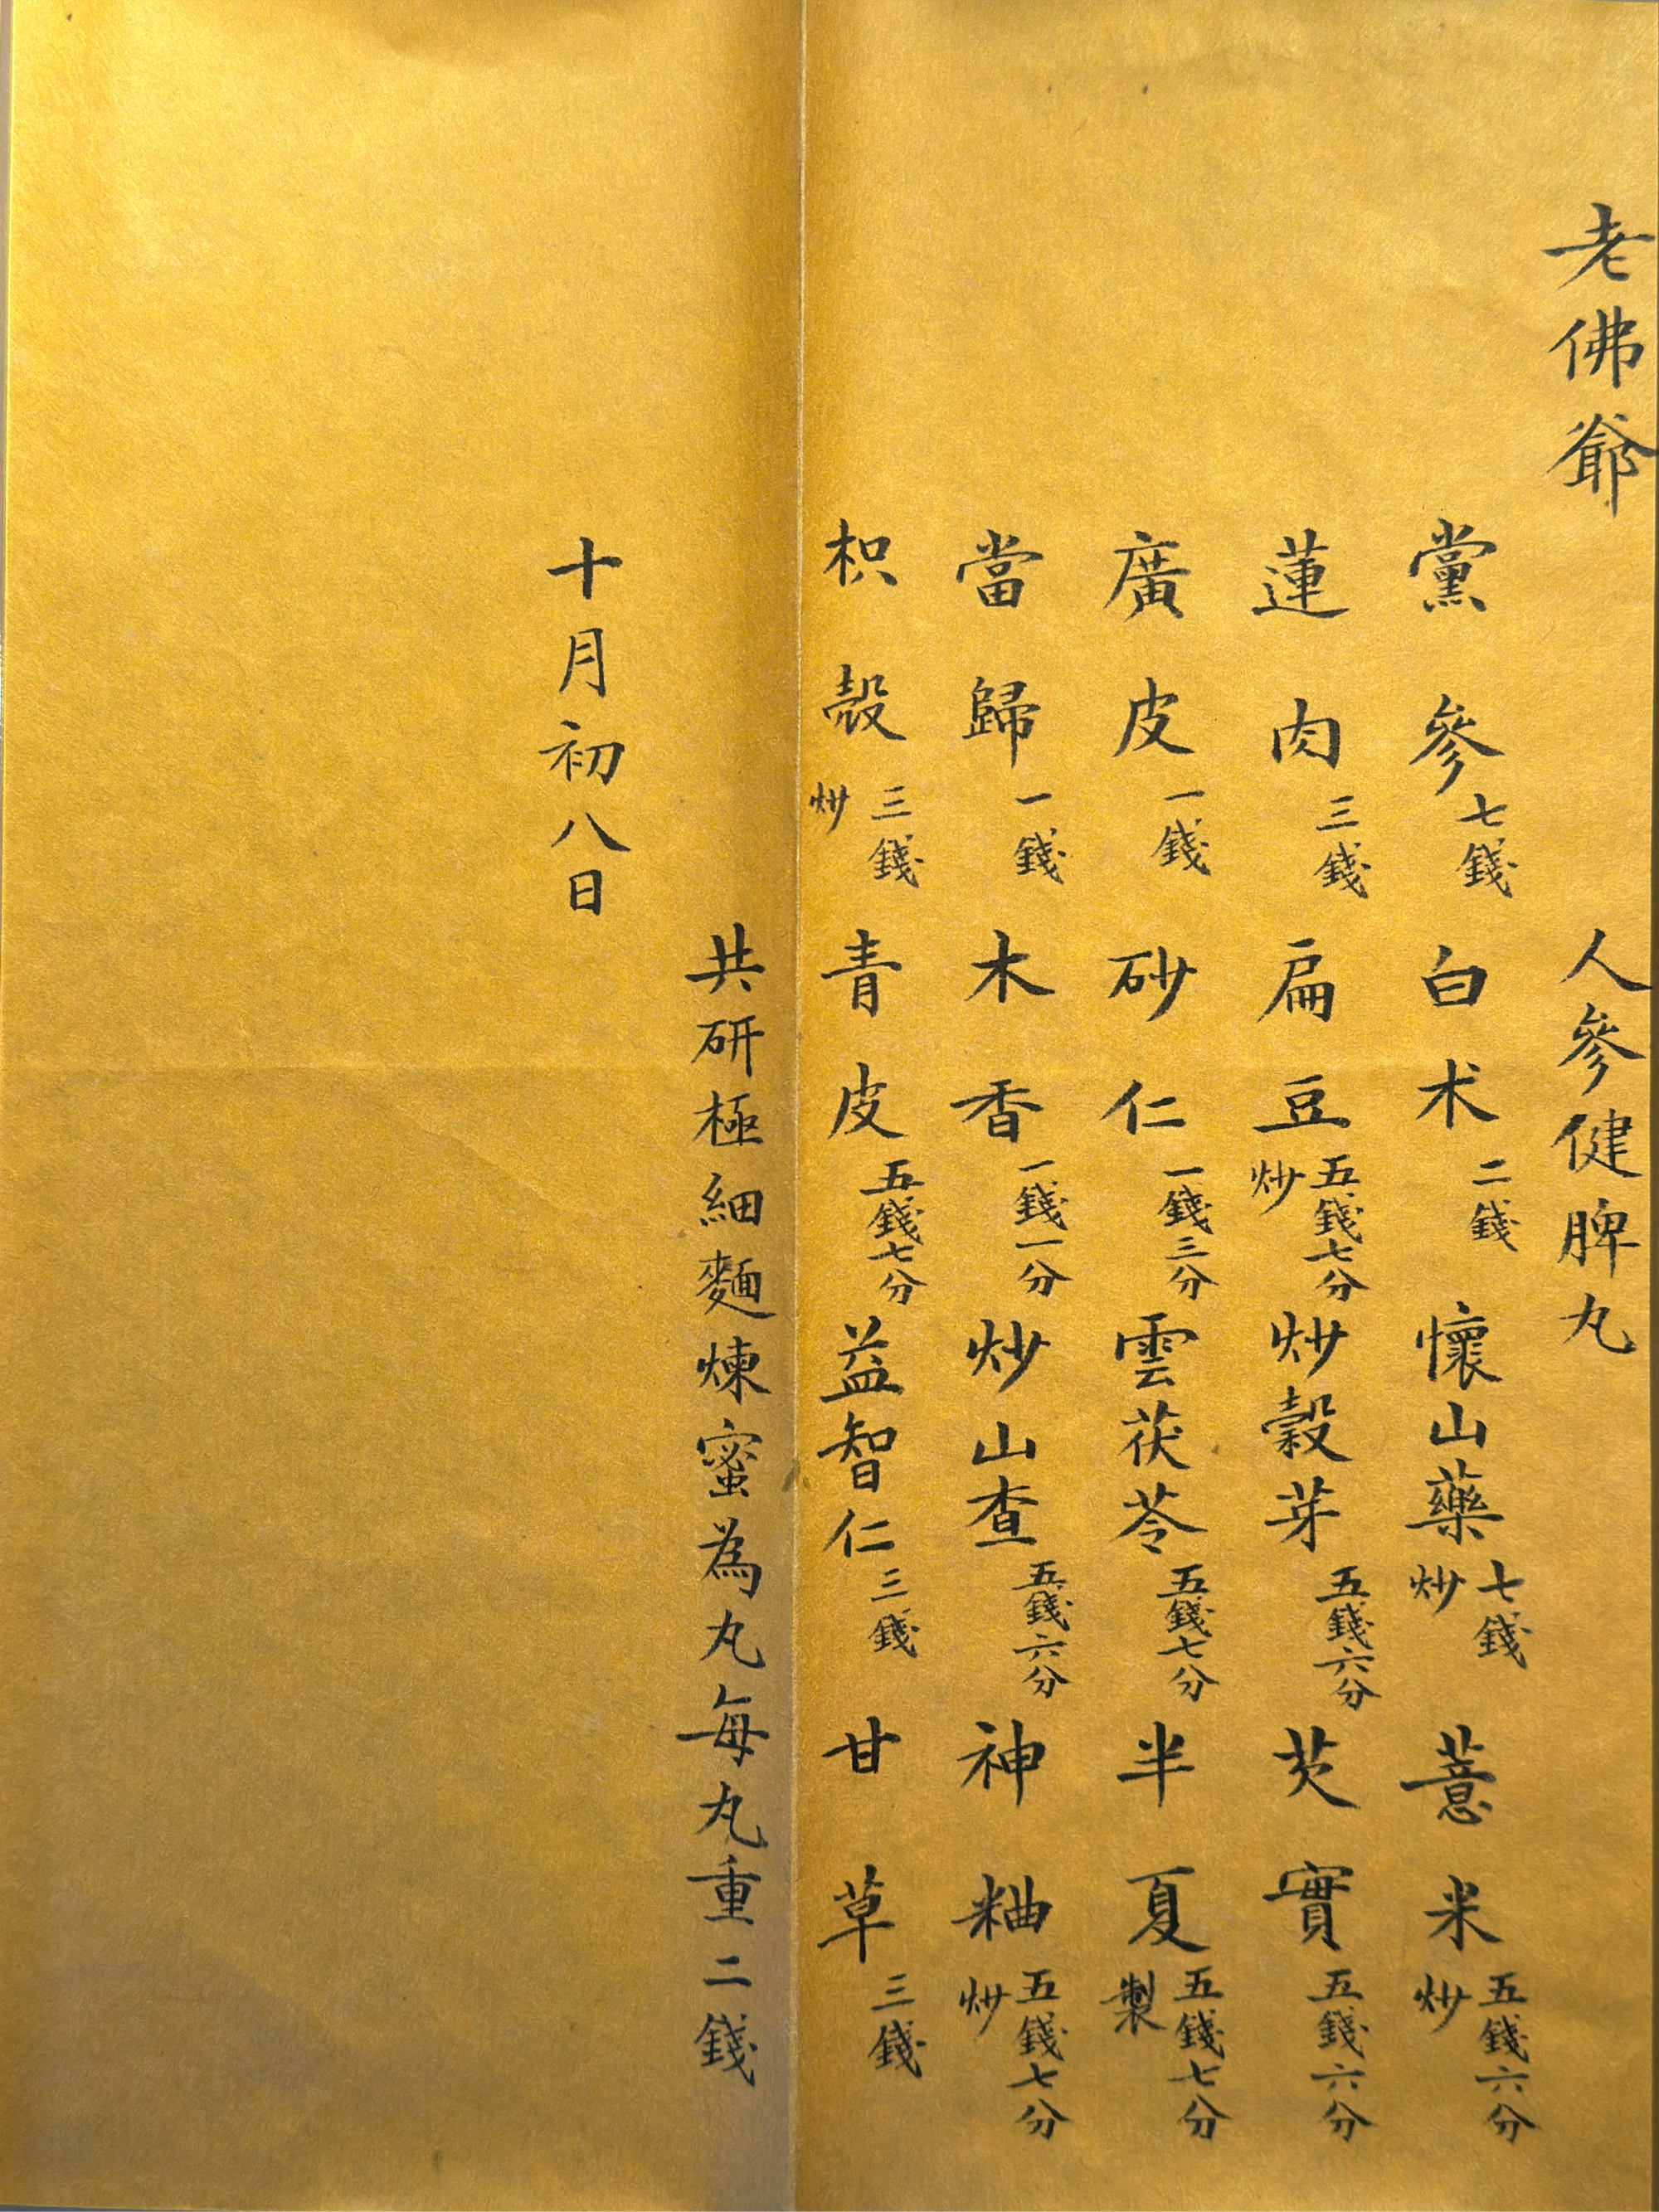 老佛爺 人參健脾丸
黨參七錢 白朮二錢 懷山藥七錢炒 薏米五錢六分炒
蓮肉三錢 扁豆五錢七分炒 炒穀芽五錢六分 芡實五錢六分
廣皮一錢 砂仁一錢三分 雲茯苓五錢七分 半夏五錢七分製
當歸一錢 木香一錢一分 炒山查五錢六分 神粬五錢七分炒
枳殼三錢炒 青皮五錢七分 益智仁三錢 甘草三錢
共研極細麵煉蜜為丸每丸重二錢
十月初八日